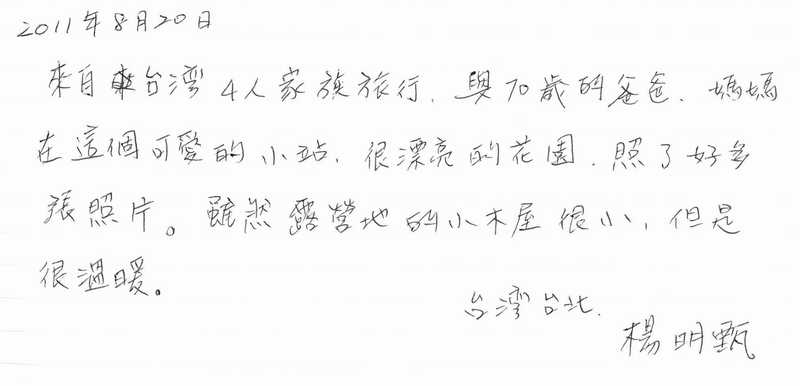 2011年8月20日
來自台湾4人家族旅行.與70歲的爸爸.媽媽
在這個可愛的小站.很漂亮的花園.照了好多
張照片。雖然露營地的小木屋很小,但是
很溫暖。
台湾台北.
楊明甄